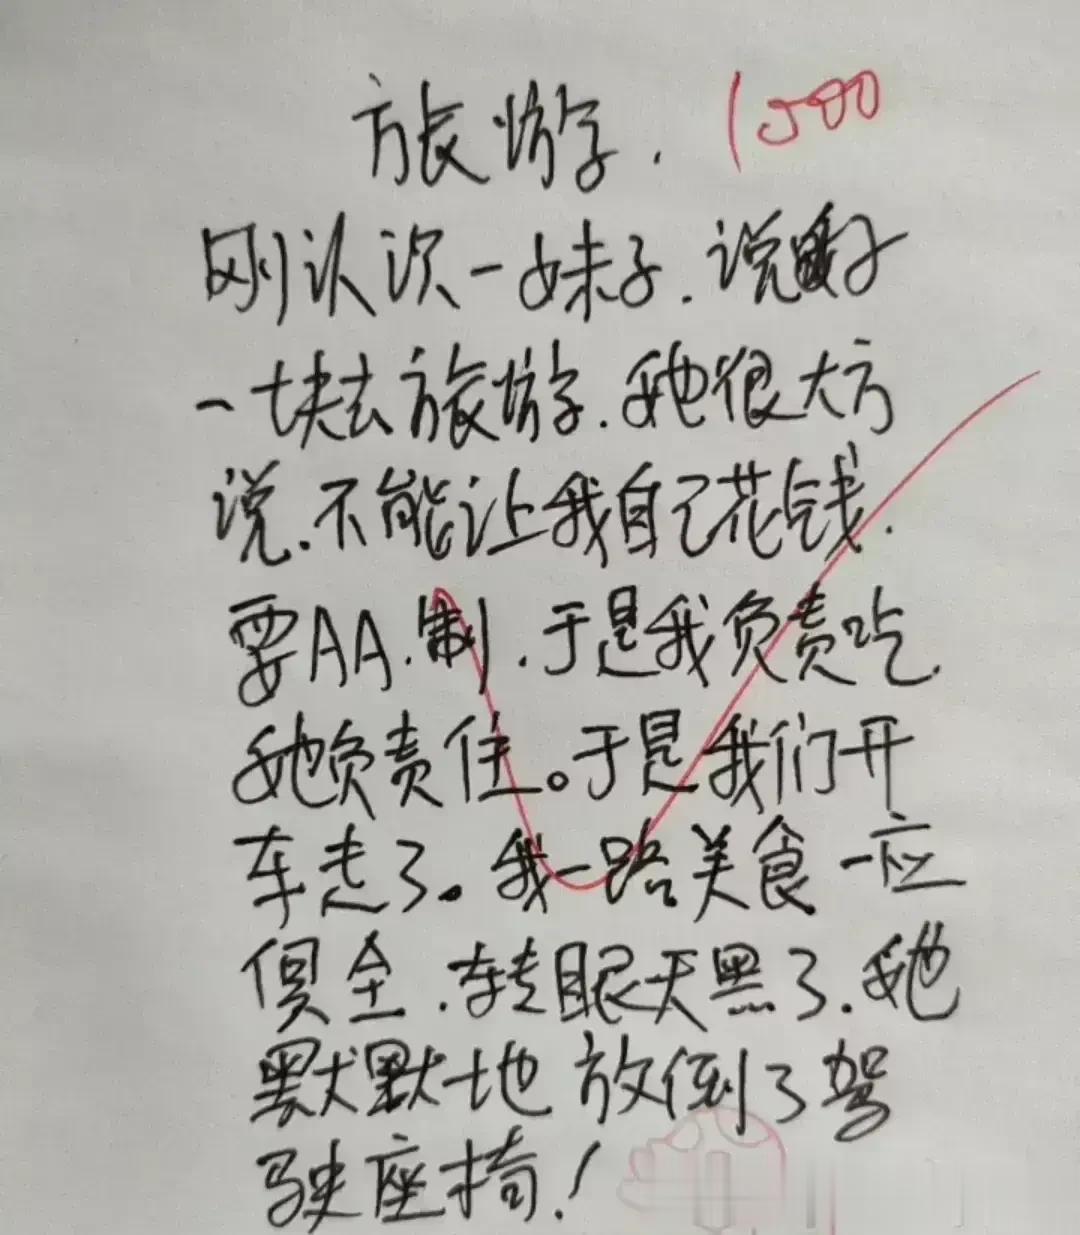 旅游. 1500
刚认次一妹子.说好
一块去旅游.她很大方
说.不能让我自己花钱.
要AA.制.于是我负责吃.
她负责住。于是我们开
车走了。我一路美食一应
俱全.转眼天黑了.她
默默地放倒了驾
驶座椅!